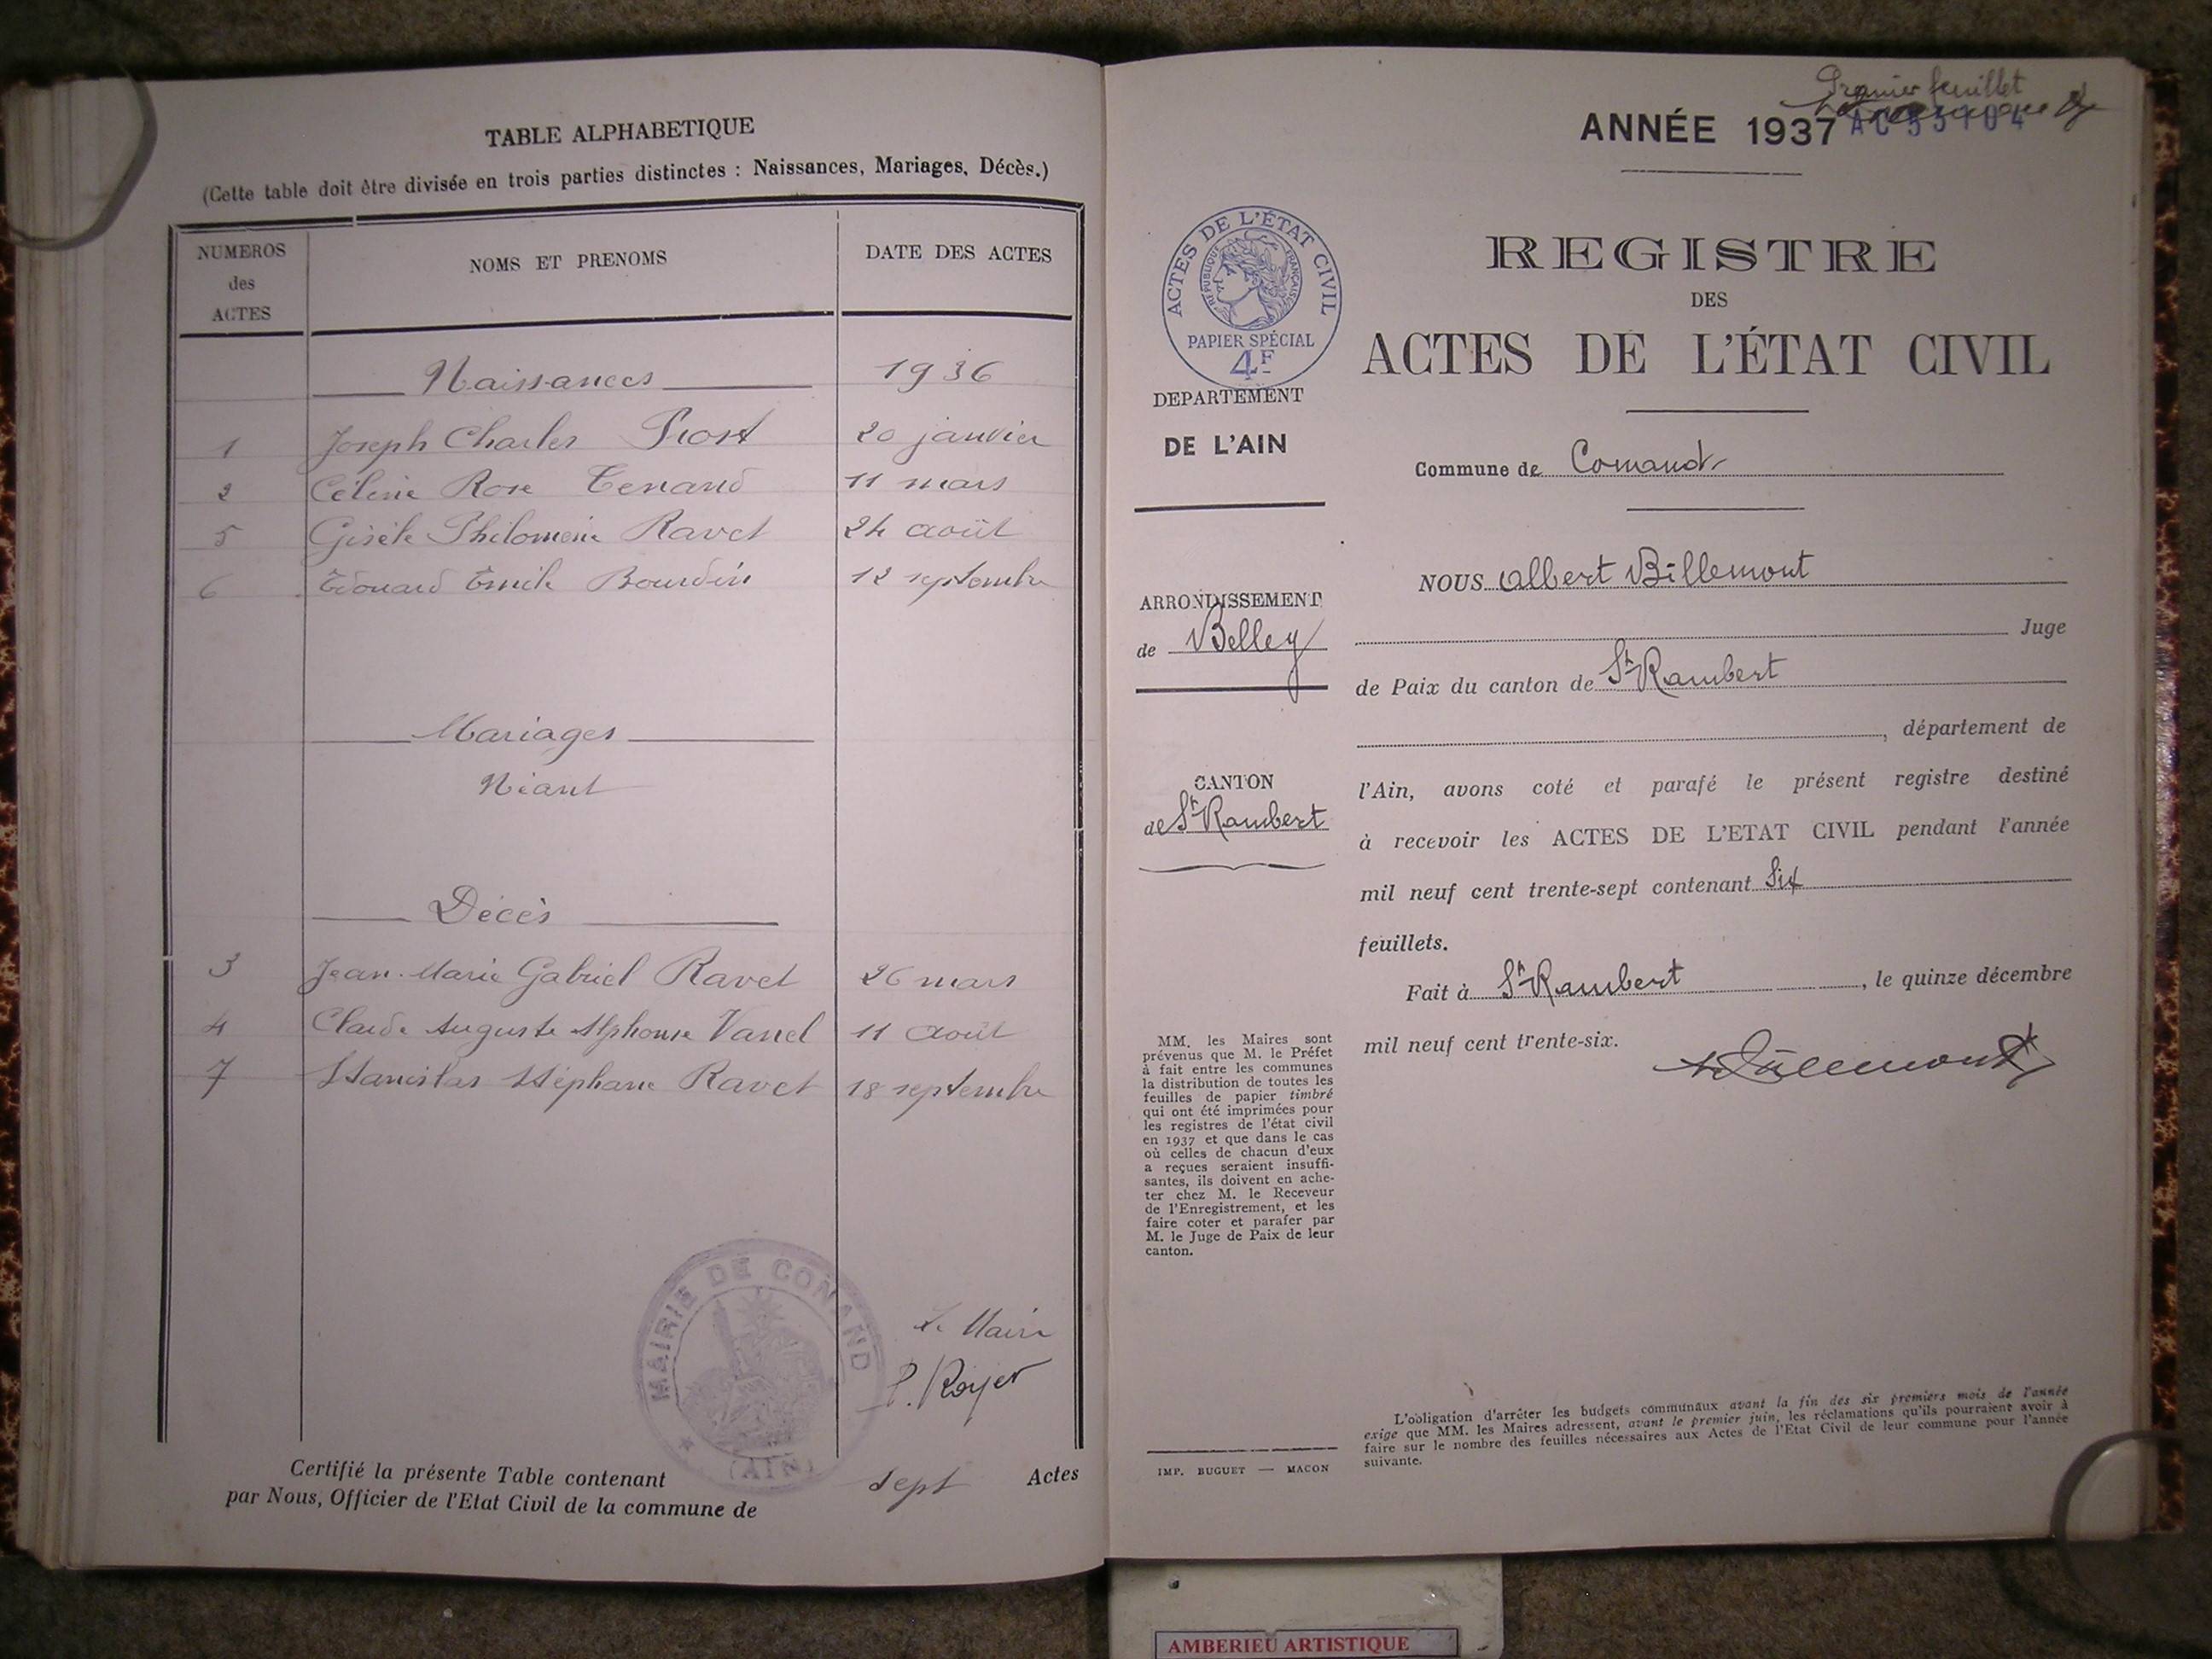 TABLE ALPHABETIQUE
(Cette table doit être divisée en trois parties distinctes : Naissances, Mariages, Décès.)
NUMEROS
des
ACTES
NOMS ET PRENOMS
DATE DES ACTES
Naissances 1936
1 Joseph Charles Prost 20 janvier
2 Céline Rose Tenand 11 mars
5 Gisèle Philomène Ravet 24 août
6 Edouard Emile Bourdin 12 septembre
Mariages
Néant
Décès
3 Jean-Marie Gabriel Ravet 26 mars
4 Claude Auguste Alphonse Vanel 11 août
7 Stanislas Stéphane Ravet 18 septembre
MAIRIE DE CONAND
(AIN)
Le Maire
P. Royer
Certifié la présente Table contenant sept Actes
par Nous, Officier de l'Etat Civil de la commune de
Premier feuillet
ANNÉE 1937 AC 55104
REGISTRE
DES
ACTES DE L'ÉTAT CIVIL
ACTES DE L'ÉTAT CIVIL
RÉPUBLIQUE FRANÇAISE
PAPIER SPÉCIAL
4F
DEPARTEMENT
DE L'AIN
ARRONDISSEMENT
de Belley
CANTON
de St Rambert
MM. les Maires sont
prévenus que M. le Préfet
à fait entre les communes
la distribution de toutes les
feuilles de papier timbré
qui ont été imprimées pour
les registres de l'état civil
en 1937 et que dans le cas
où celles de chacun d'eux
a reçues seraient insuffi-
santes, ils doivent en ache-
ter chez M. le Receveur
de l'Enregistrement, et les
faire coter et parafer par
M. le Juge de Paix de leur
canton.
IMP. BUGUET — MACON
Commune de Conand
NOUS Albert Billemont
Juge
de Paix du canton de St Rambert
, département de
l'Ain, avons coté et parafé le présent registre destiné
à recevoir les ACTES DE L'ETAT CIVIL pendant l'année
mil neuf cent trente-sept contenant Six
feuillets.
Fait à St Rambert, le quinze décembre
mil neuf cent trente-six.
Billemont
L'obligation d'arrêter les budgets communaux avant la fin des six premiers mois de l'année
exige que MM. les Maires adressent, avant le premier juin, les réclamations qu'ils pourraient avoir à
faire sur le nombre des feuilles nécessaires aux Actes de l'Etat Civil de leur commune pour l'année
suivante.
AMBERIEU ARTISTIQUE